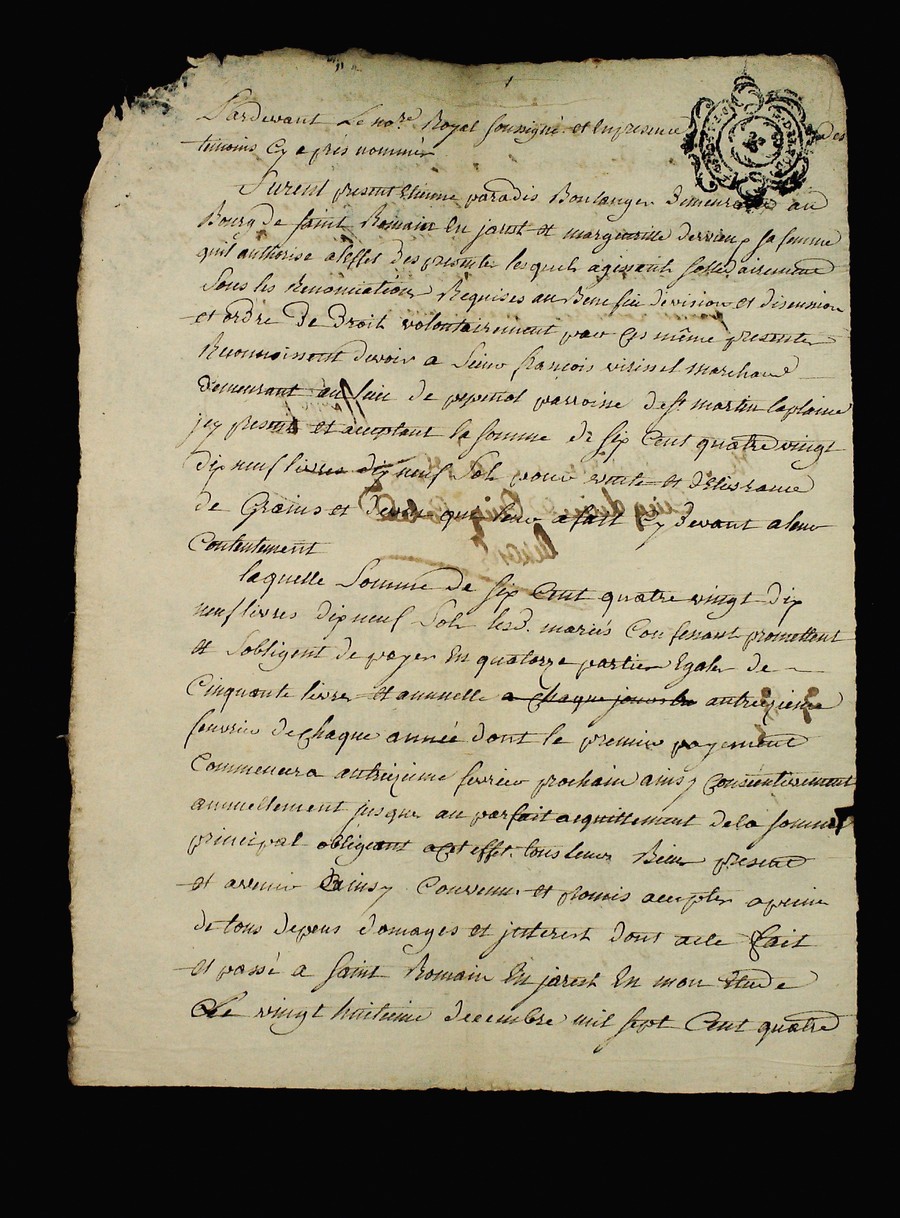 Pardevant Le no.re Royal soussigné et En presence des
temoins Cy apres nommés
Furent presents Etienne paradis Boulanger demeurant au
Bourg de saint Romain En jarest et marguerite dervieux sa femme
quil authorise a leffet des presentes lesquels agissant sollidairement
sous les Renonciations Requises au Benefice de division et discussion
et ordre De Droit volontairement par ces même presentes
Reconnoissent devoir a sieur françois marchand
demeurant au lieu de parroisse de st. martin laplaine
jcy present et acceptant la somme de six Cent quatre vingt
dix neuf livres dix neuf sols pour vente et delivrance
de Grains et que leur a fait Cy devant a leur
Contentement
laquelle somme de six Cent quatre vingt dix
neuf livres dix neuf sols lesd. mariés Confessant promettent
et sobligent de payer En quatorze parties Egales de
Cinquante livres et annuelle a chaque jour de autreizieme
fevrier de chaque année dont le premier payement
Commencera autreizieme fevrier prochain ainsy Consecutivement
annuellement jusque au parfait acquittement de la somme
principal obligeant a cet effet tous leurs Biens presents
et avenir Ainsy Convenu et promis accepter a peine
de tous depens domages et jnterest dont acte fait
et passé a saint Romain En jarest En mon Etude
Le vingt huitieme decembre mil sept Cent quatre